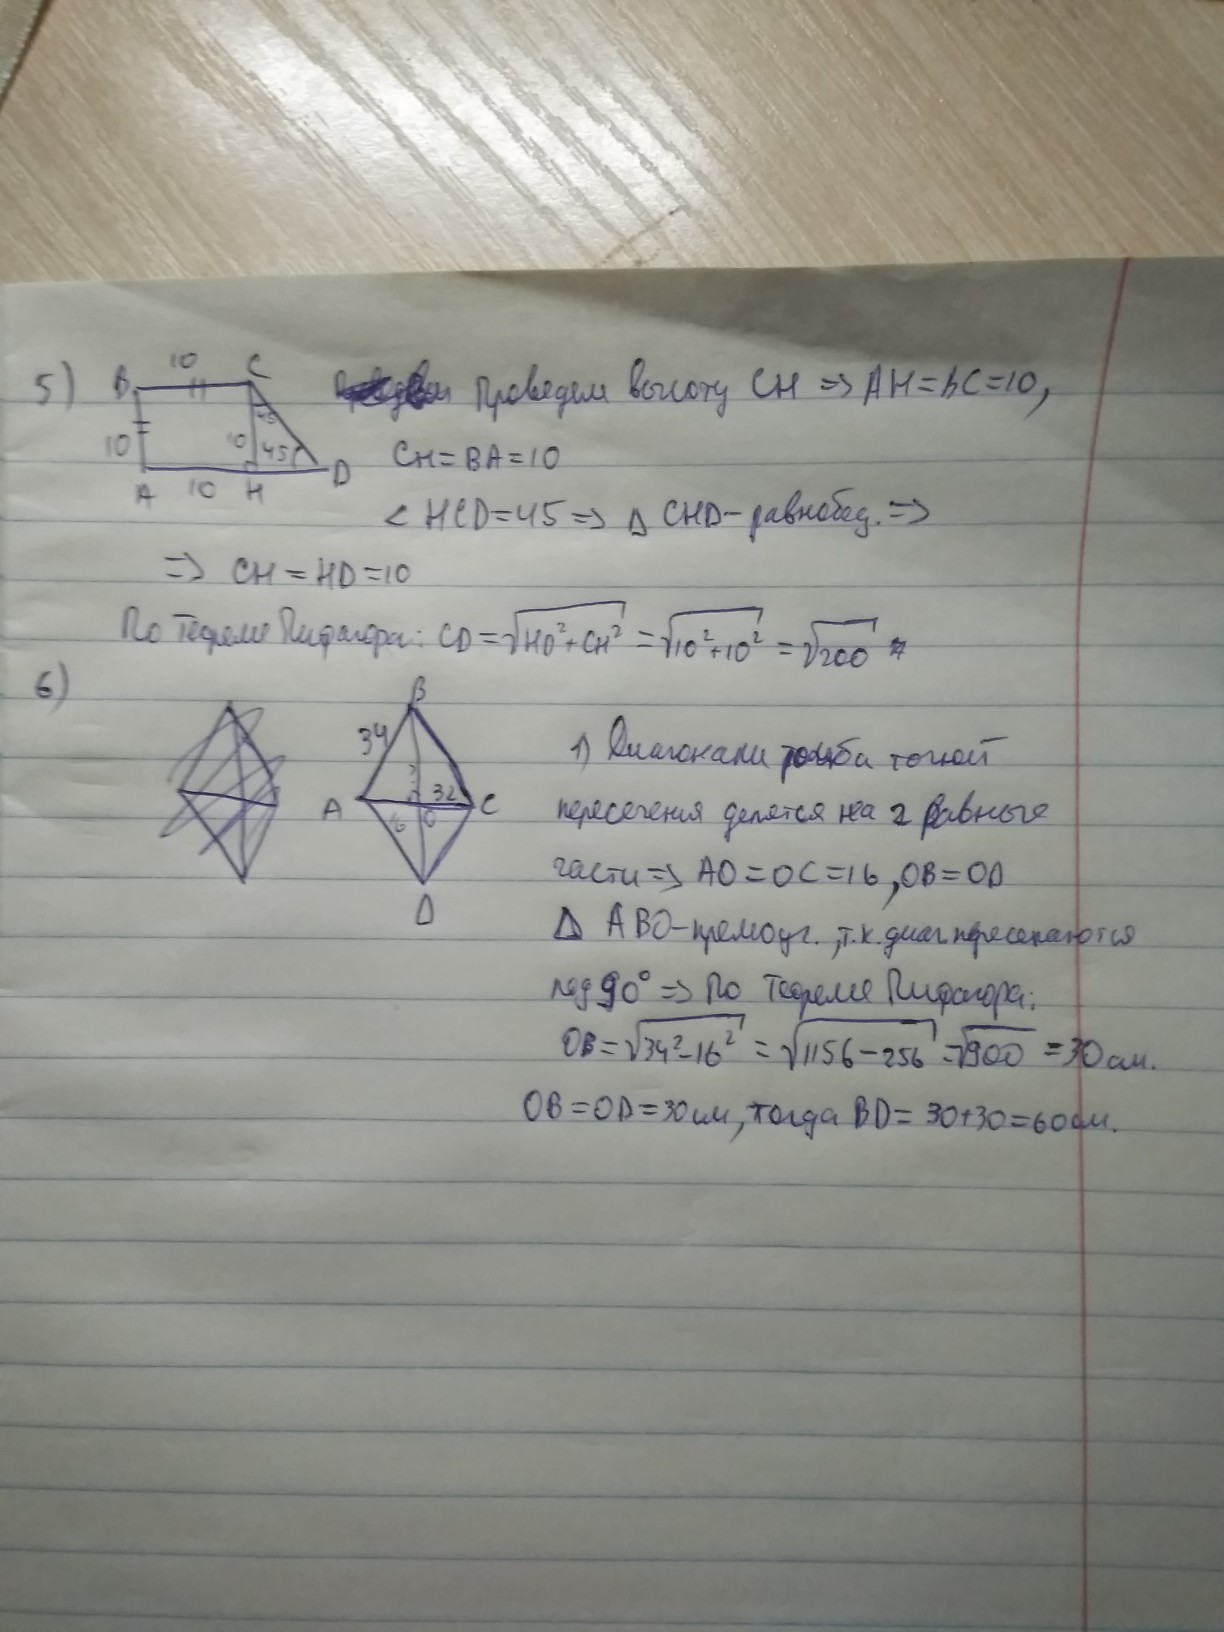 5) B 10 C Проведем высоту CH => AH=BC=10,
10 10 45 45
A 10 H D CH=BA=10
< HCD=45 => Δ CHD-равнобед. =>
=> CH = HD=10
По Теореме Пифагора: CD=√HD²+CH² =√10²+10² =√200
6)
B
34
A 32 C
16 O
D
1) Диагонали ромба точкой
пересечения делятся на 2 равные
части=> AO=OC=16, OB=OD
Δ ABO-прямоуг., т.к. диаг пересекаются
под 90° => По Теореме Пифагора:
OB=√34²-16² =√1156-256 =√900 =30 см.
OB=OD=30см, тогда BD= 30+30=60см.